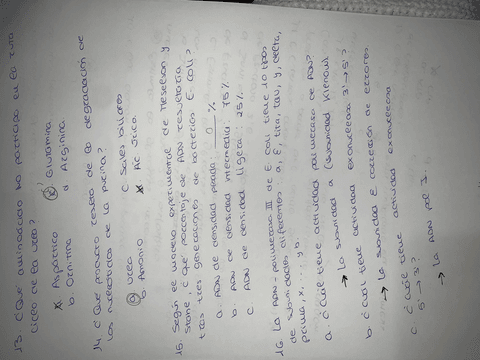 13. ¿Qué aminoácido no participa en la ruta
ciclo de la urea?
a. Aspártico c. Glutamina
b. Ornitina d. Arginina
14. ¿Qué producto resulta de la degradación de
los nucleótidos de la purina?
a. Urea c. Sales biliares
b. Amonio d. Ac. úrico.
15. Según el modelo experimental de Meselson y
Stahl, ¿qué porcentaje de ADN resultaría
tras tres generaciones de bacterias E. coli?
a. ADN de densidad pesada: 0 %
b. ADN de densidad intermedia: 75%
c. ADN de densidad ligera: 25%
16. La ADN-polimerasa III de E. Coli tiene 10 tipos
de subunidades diferentes: α, ε, tita, tau, γ, delta,
prima, x, ... y β.
a. ¿cuál tiene actividad polimerasa de ADN?
→ la subunidad α (subunidad Klenow).
b. ¿cuál tiene actividad exonucleasa 3'→5'?
→ la subunidad ε corrección de errores
c. ¿cuál tiene actividad exonucleasa
5'→3'?
→ la ADN pol I.